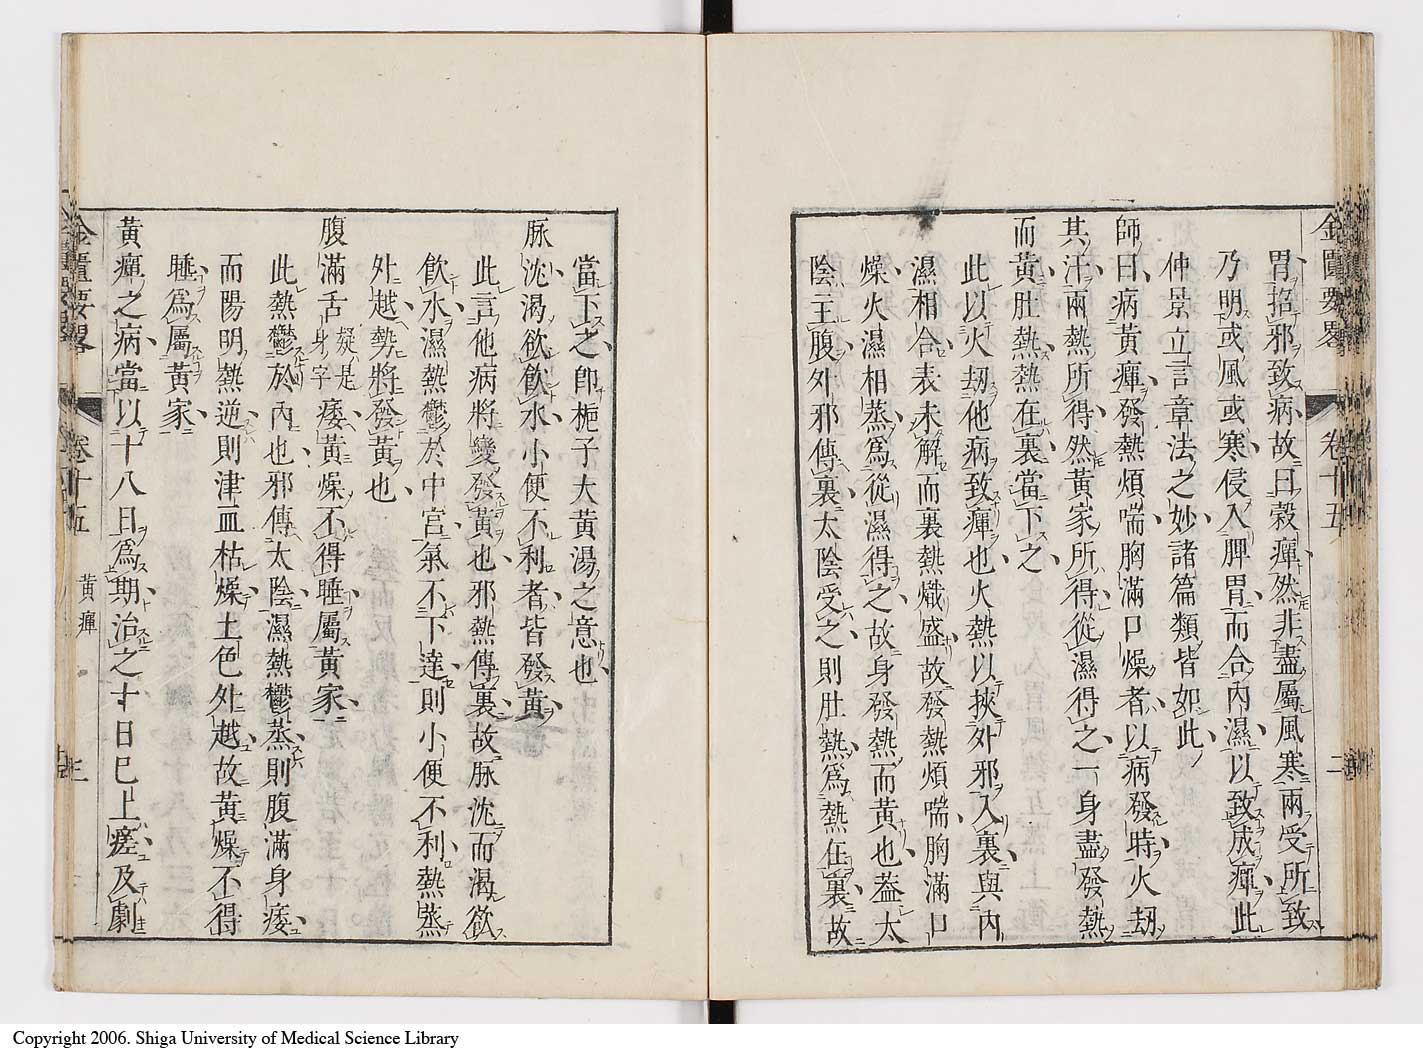 胃招邪致病故曰穀癉然非盡屬風寒兩受所致
乃明或風或寒侵入脾胃而合内濕以致成癉此
仲景立言章法之妙諸篇類皆如此
師曰病黃癉發熱煩喘胸滿口燥者以病發時火劫
其汗兩熱所得然黃家所得從濕得之一身盡發熱
而黃肚熱熱在裏當下之
此以火劫他病致癉也火熱以挾外邪入裏與内
濕相合表未解而裏熱熾盛故發熱煩喘胸滿口
燥火濕相蒸爲從濕得之故身發熱而黃也葢太
陰主腹外邪傳裏太陰受之則肚熱爲熱在裏故
當下之卽梔子大黃湯之意也
脈沈渴欲飮水小便不利者皆發黃
此言他病將變發黃也邪熱傳裏故脈沈而渴欲
飮水濕熱鬱於中宮氣不下達則小便不利熱蒸
外越勢將發黃也
腹滿舌疑是身字痿黃燥不得睡屬黃家
此熱鬱於内也邪傳太陰濕熱鬱蒸則腹滿身痿
而陽明熱逆則津血枯燥土色外越故黃燥不得
睡爲屬黃家
黃癉之病當以十八日爲期治之十日已上瘥反劇
金匱要畧 卷十五 黃癉
Copyright 2006. Shiga University of Medical Science Library